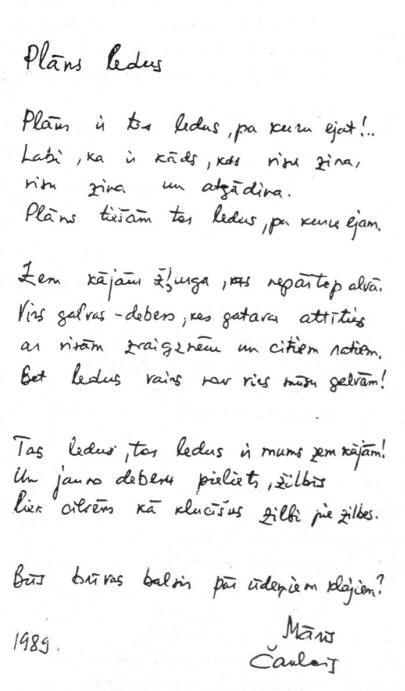 Plāns ledus
Plāns ir tas ledus, pa kuru ejat!..
Labi, ka ir kāds, kas visu zina,
visu zina un atgādina.
Plāns tiešām tas ledus, pa kuru ejam.
Zem kājām žļurga, kas nepārtop alvā.
Virs galvas – debess, kas gatava attīties
ar visām zvaigznēm un citiem ratiem.
Bet ledus vairs nav virs mūsu galvām!
Tas ledus, tas ledus ir mums zem kājām!
Un jauno debesu pieliets, žilbis
liek cilvēks kā klucīšus zilbi pie zilbes.
Būs brīvas balsis pār ūdeņiem klajiem?
Māris
Čaklais
1989.